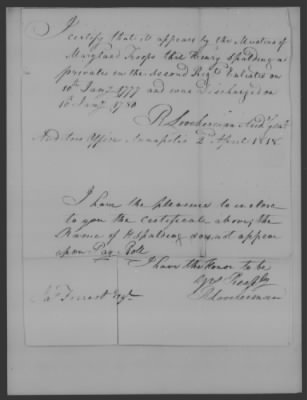 I certify that it appears by the Musters of
Maryland Troops that Henry Spalding a
private in the Second Regt. Enlisted on
10th Jany. 1777 and was Discharged on
10 Jany. 1780
R Loockerman Aud. Genl.
Auditors Office Annapolis 2d April 1818
I have the pleasure to enclose
to you the certificate above, the
Name of H Spalding does not appear
upon Pay Roll
I have the Honor to be
yrs Respy
R Loockerman
Forrest Esqr.